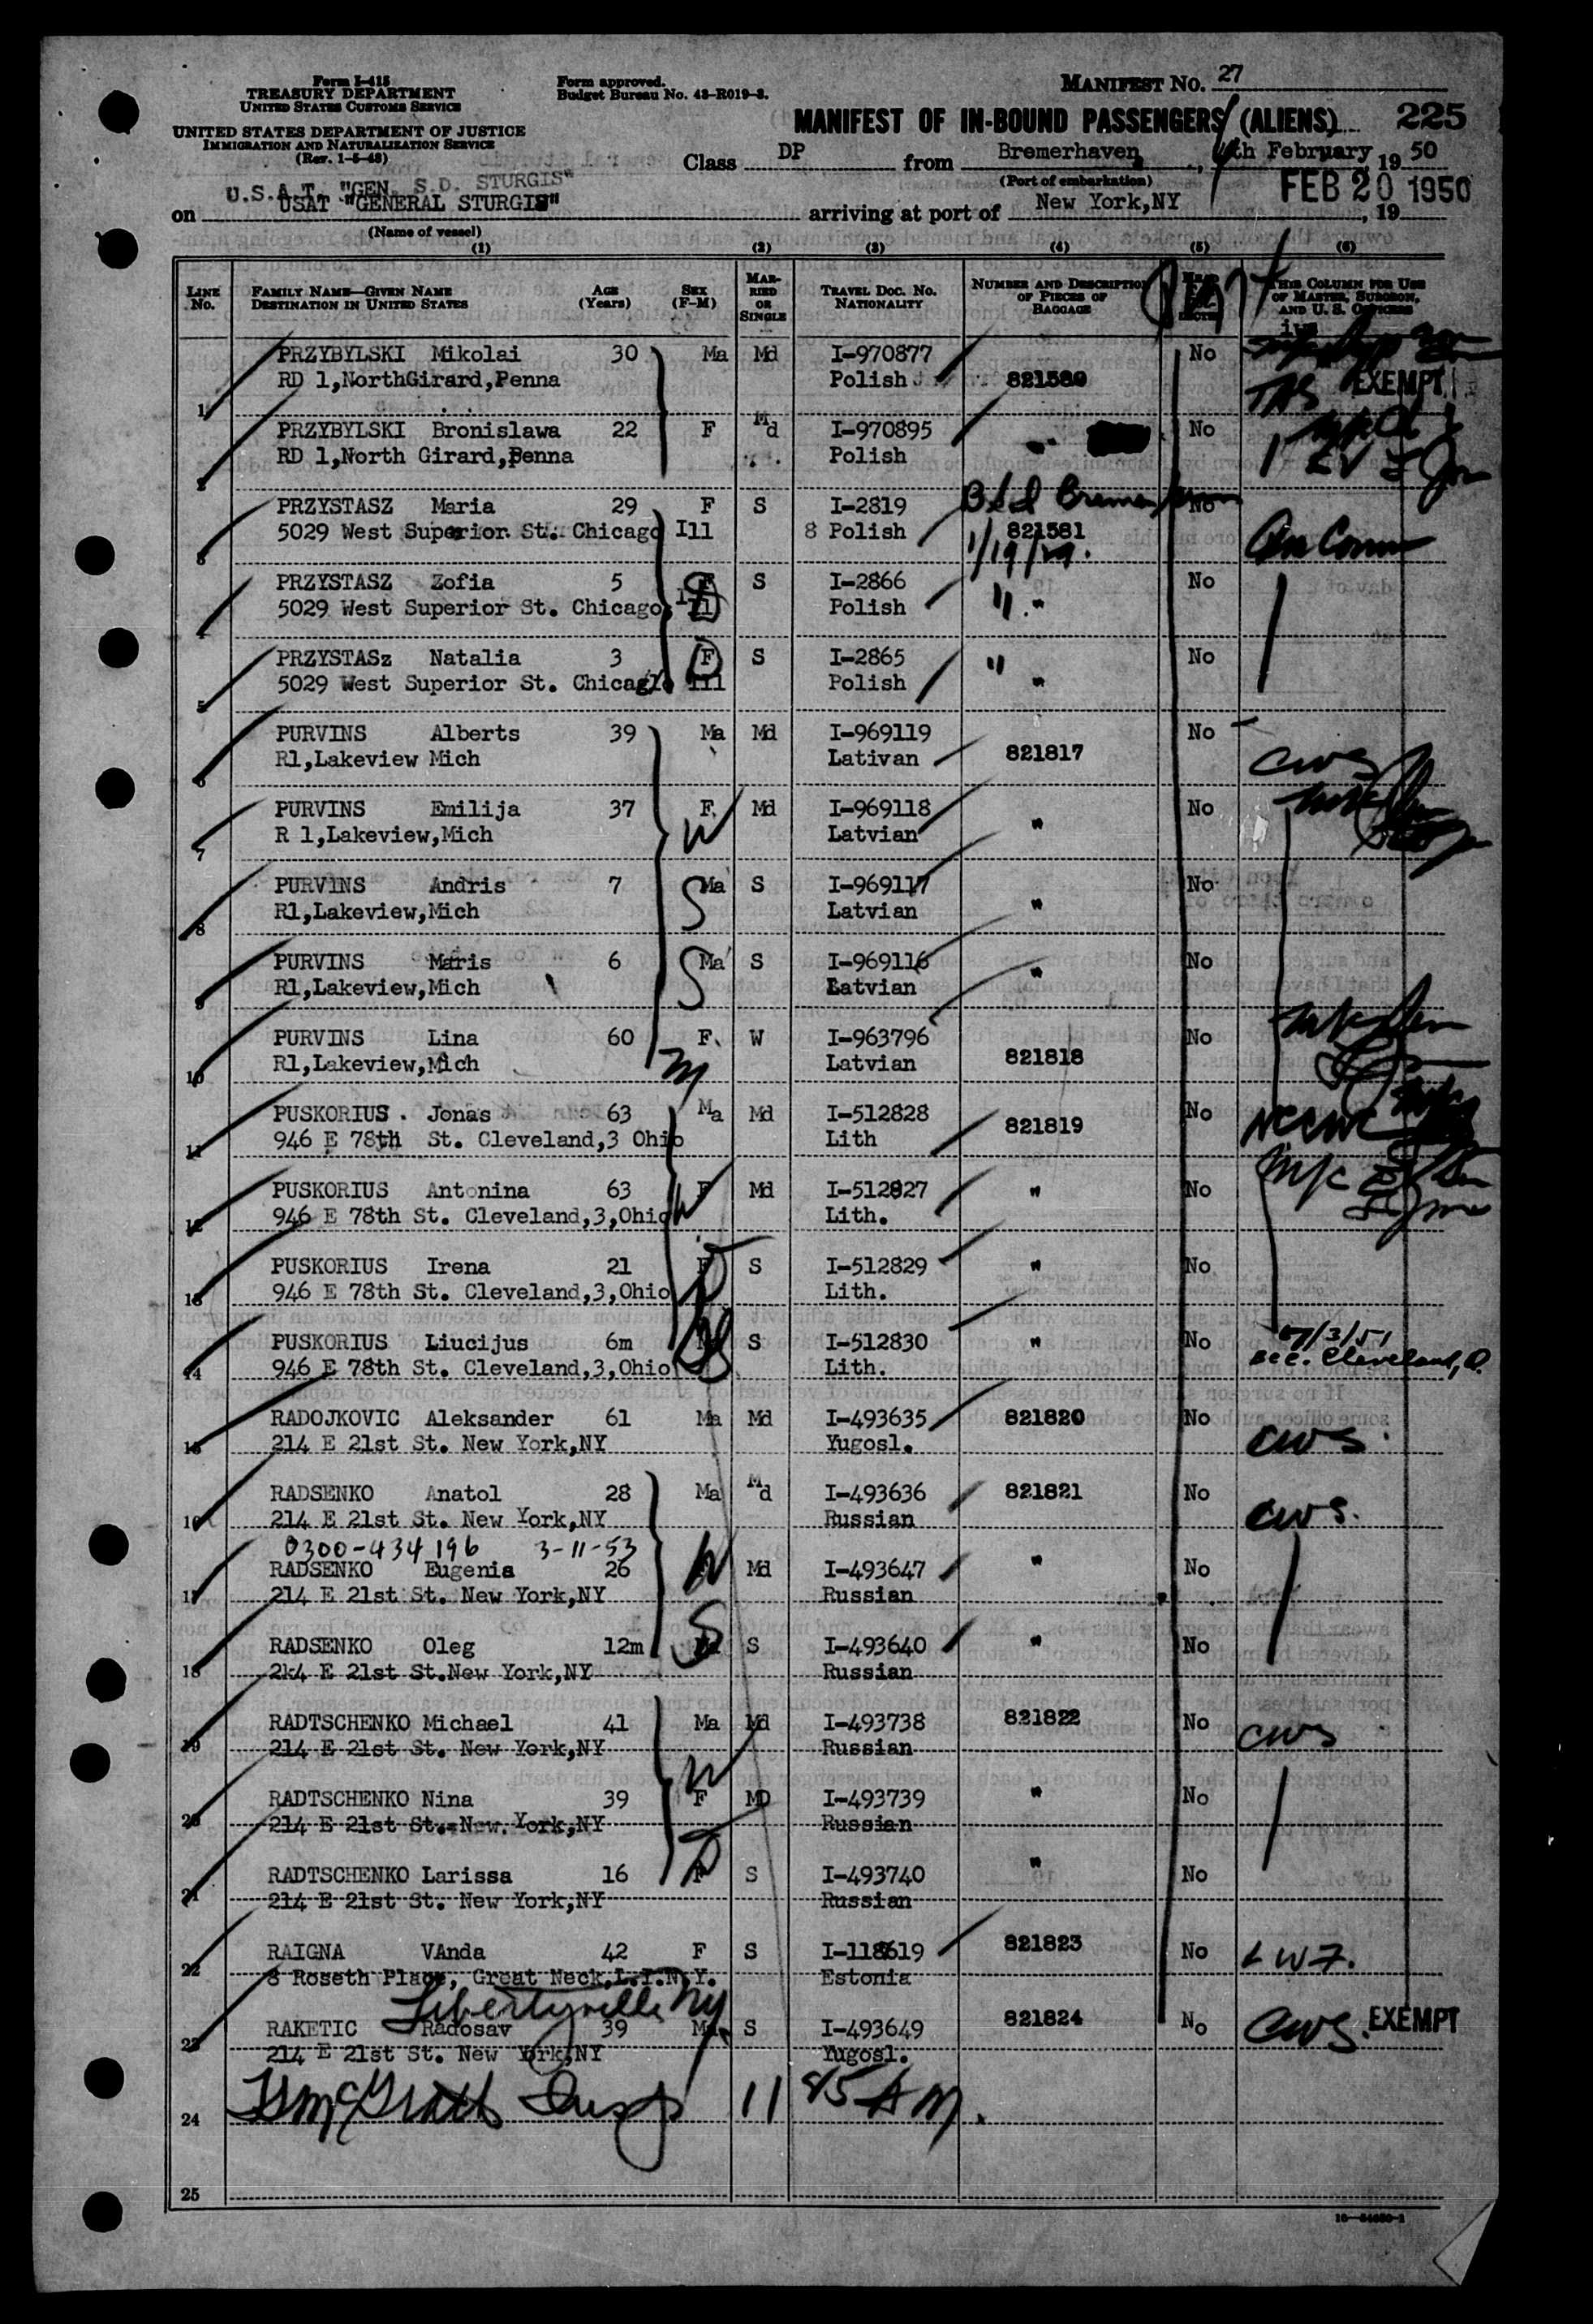 Form I-415
TREASURY DEPARTMENT
UNITED STATES CUSTOMS SERVICE
UNITED STATES DEPARTMENT OF JUSTICE
IMMIGRATION AND NATURALIZATION SERVICE
(Rev. 1-5-48)
Form approved.
Budget Bureau No. 43-R019-3.
MANIFEST NO. 27
MANIFEST OF IN-BOUND PASSENGERS (ALIENS) 225
Class DP from Bremerhaven, th February, 19 50
(Port of embarkation)
FEB 20 1950
U.S.A.T. "GEN. S.D. STURGIS"
on USAT "GENERAL STURGIS" arriving at port of New York,NY, 19
(Name of vessel)
(1) (2) (3) (4) (5) (6)
LINE No. FAMILY NAME—GIVEN NAME DESTINATION IN UNITED STATES AGE (Years) SEX (F-M) MARRIED OR SINGLE TRAVEL DOC. NO. NATIONALITY NUMBER AND DESCRIPTION OF PIECES OF BAGGAGE HEAD TAX THIS COLUMN FOR USE OF MASTER, SURGEON, AND U. S. OFFICERS
PRZYBYLSKI Mikolai 30 Ma Md I-970877 No
1 RD 1,NorthGirard,Penna Polish 821580 EXEMPT
PRZYBYLSKI Bronislawa 22 F Md I-970895 " No
2 RD 1,North Girard,Penna Polish
PRZYSTASZ Maria 29 F S I-2819 No
3 5029 West Superior St. Chicago Ill 8 Polish 821581
1/19/29.
PRZYSTASZ Zofia 5 F S I-2866 No
4 5029 West Superior St. Chicago, Ill Polish " "
PRZYSTASz Natalia 3 F S I-2865 " No
5 5029 West Superior St. Chicago Ill Polish "
PURVINS Alberts 39 Ma Md I-969119 No
6 R1,Lakeview Mich Lativan 821817 CWS
PURVINS Emilija 37 F. Md I-969118 No
7 R 1,Lakeview,Mich W Latvian "
PURVINS Andris 7 S Ma S I-969117 No
8 R1,Lakeview,Mich Latvian "
PURVINS Maris 6 S Ma S I-969116 " No
9 R1,Lakeview,Mich Latvian
PURVINS Lina 60 F. W I-963796 No
10 R1,Lakeview,Mich M Latvian 821818
PUSKORIUS. Jonas 63 Ma Md I-512828 821819 No
11 946 E 78th St. Cleveland,3 Ohio Lith NCWC
PUSKORIUS Antonina 63 F W Md I-512827 " No
12 946 E 78th St. Cleveland,3,Ohio Lith.
PUSKORIUS Irena 21 F S I-512829 " No
13 946 E 78th St. Cleveland,3,Ohio Lith.
PUSKORIUS Liucijus 6m S I-512830 " No
14 946 E 78th St. Cleveland,3,Ohio Lith. Cleveland, O.
RADOJKOVIC Aleksander 61 Ma Md I-493635 821820 No
15 214 E 21st St. New York,NY Yugosl. CWS
RADSENKO Anatol 28 Ma Md I-493636 821821 No
16 214 E 21st St. New York,NY Russian CWS.
0300-434196 3-11-53
RADSENKO Eugenia 26 W Md I-493647 " No
17 214 E 21st St. New York,NY Russian
RADSENKO Oleg 12m S S I-493640 " No
18 2k4 E 21st St.New York,NY Russian
RADTSCHENKO Michael 41 Ma Md I-493738 821822 No CWS
19 214 E 21st St. New York,NY Russian
W
RADTSCHENKO Nina 39 F MD I-493739 " No
20 214 E 21st St. New. York,NY Russian
RADTSCHENKO Larissa 16 F S I-493740 " No
21 214 E 21st St. New York,NY Russian
RAIGNA VAnda 42 F S I-118619 821823 No LWF.
22 8 Roseth Place, Great Neck,L.I.N.Y. Estonia
Libertyville NY
RAKETIC Radosav 39 Ma S I-493649 821824 No CWS. EXEMPT
23 214 E 21st St. New York,NY Yugosl.
24 McGrath Insp 11 45 AM.
25